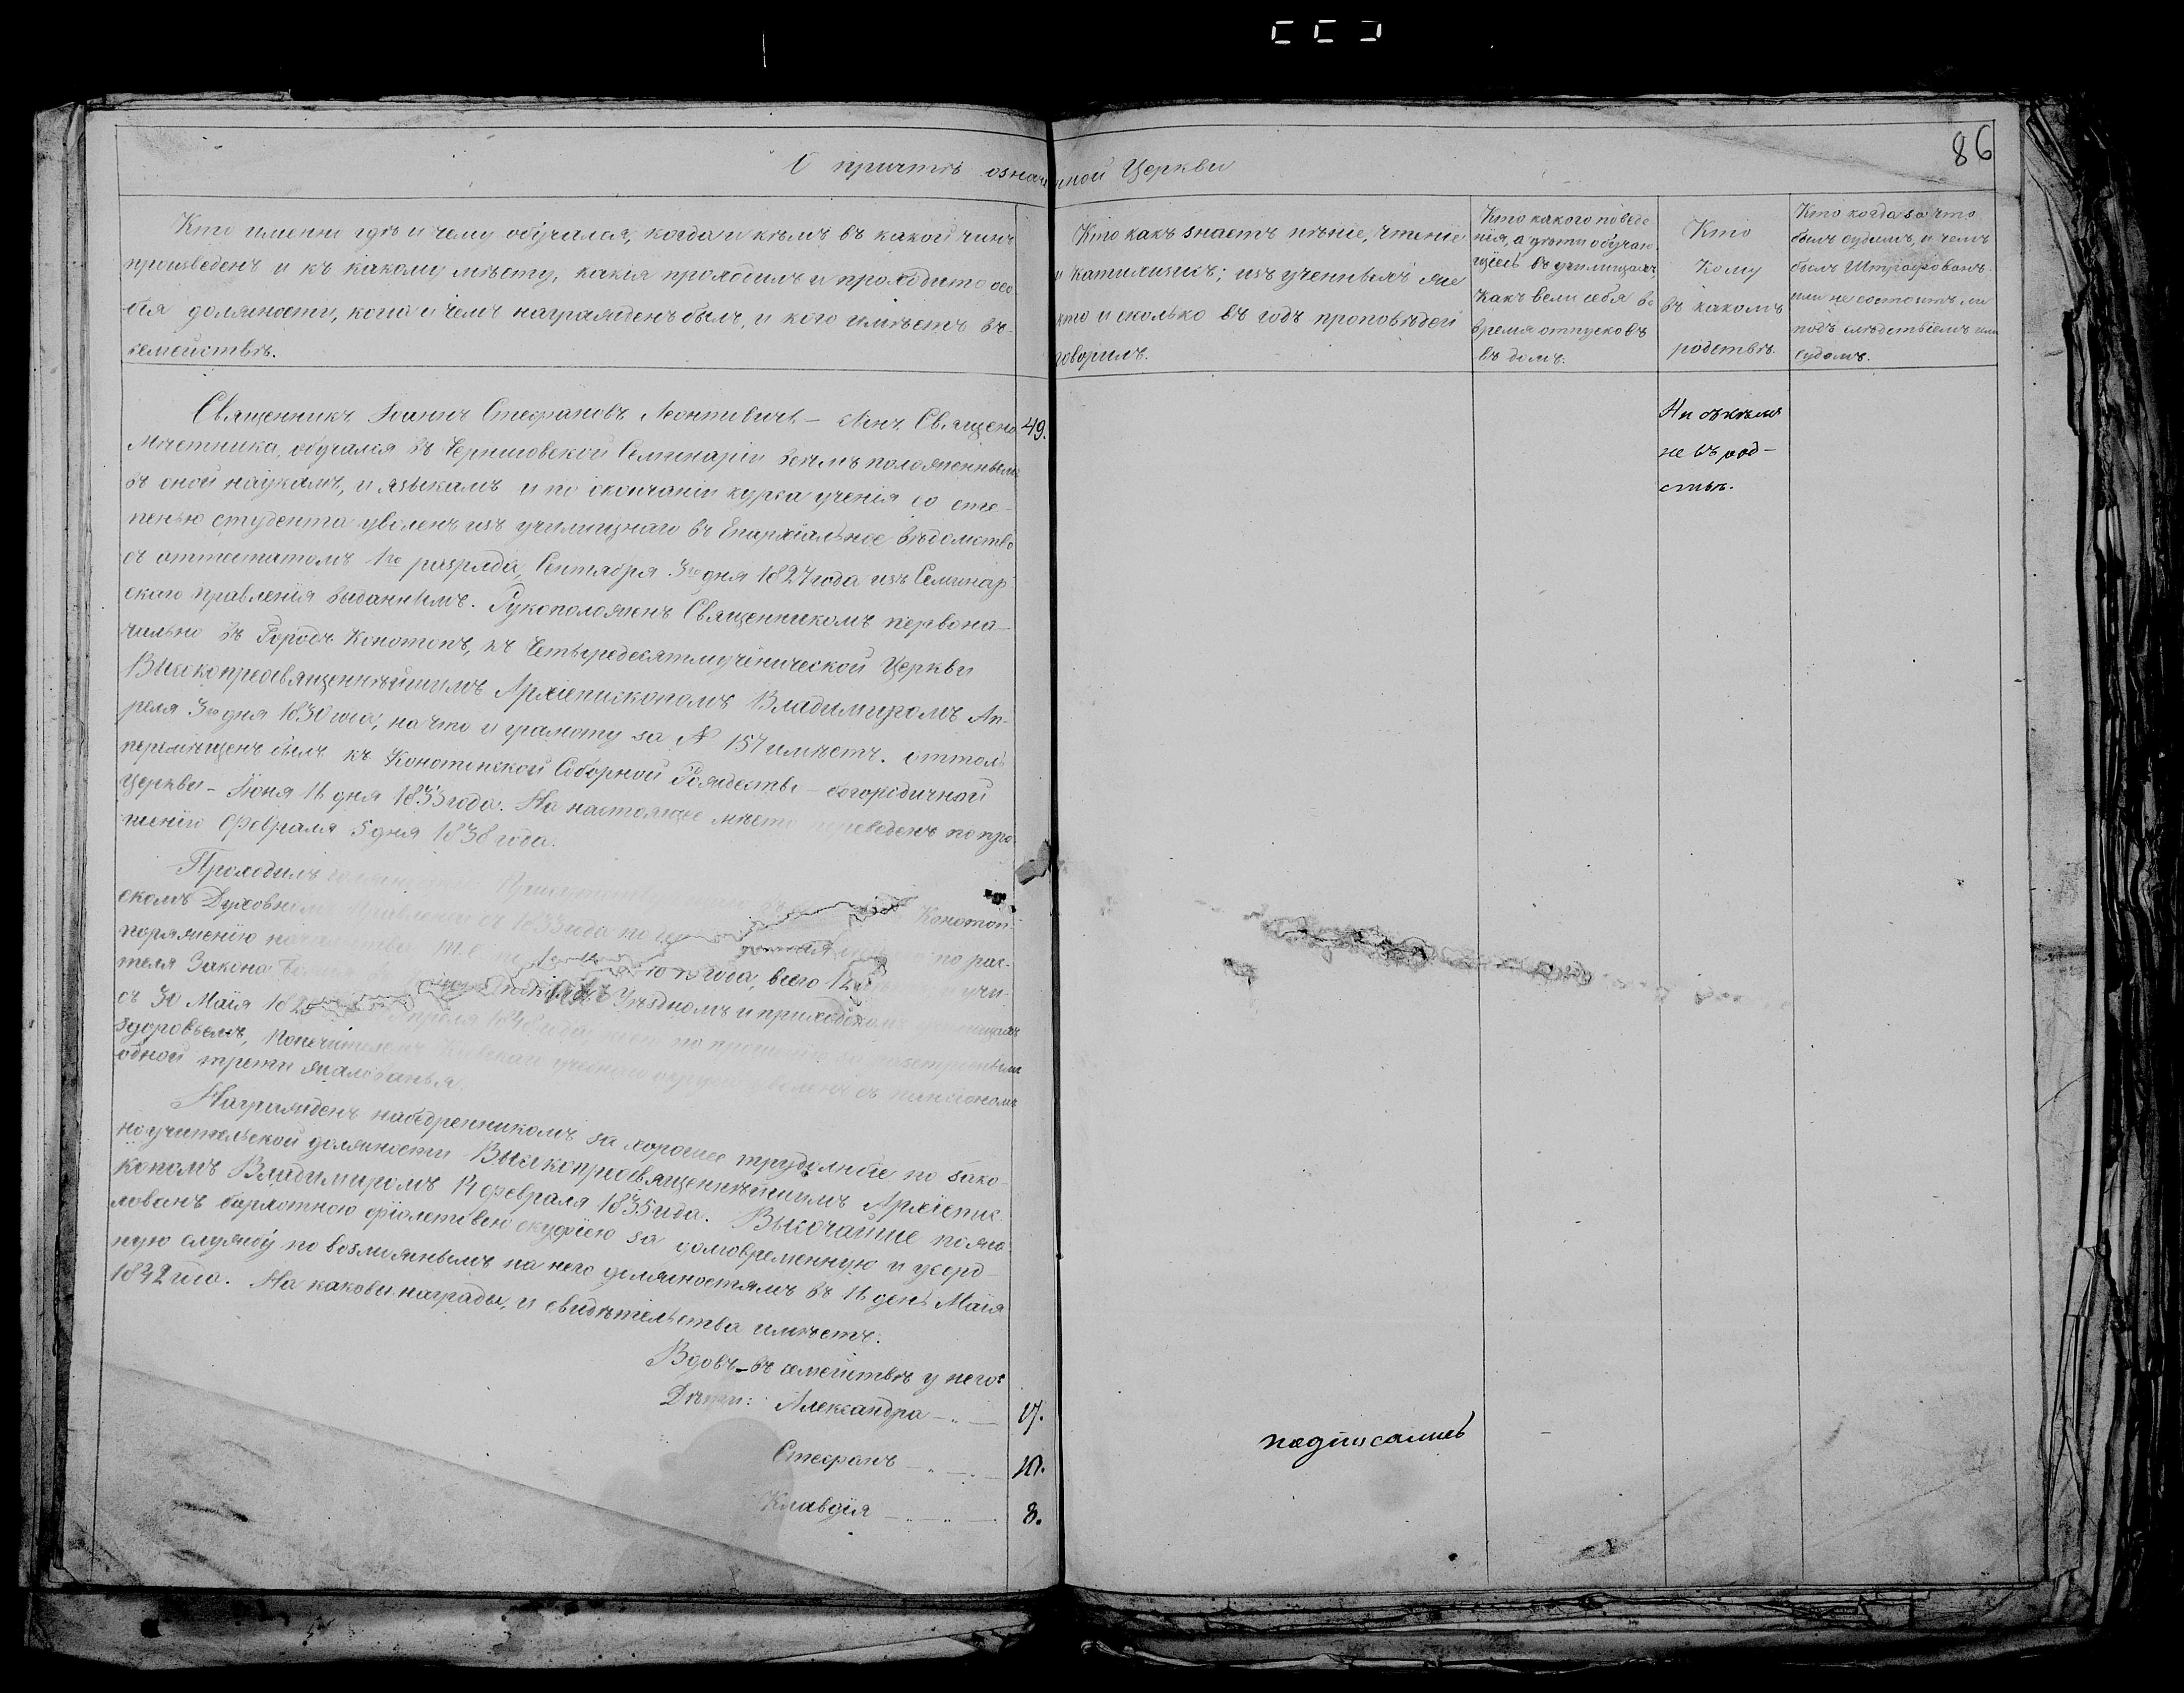 86
О причтѣ означенной Церкви
Кто имянно гдѣ и чему обучался, когда и кѣмъ въ какой чинъ
произведенъ и къ какому мѣсту, какія проходилъ и проходитъ осо-
бія должности, когда и чемъ награжденъ былъ, и кого имѣетъ въ
семействѣ.
Кто какъ знаетъ пѣніе, чтеніе
и катихизисъ; изъ ученныхъ же
кто и сколько въ годъ проповѣдей
говорилъ.
Кто какого поведе-
нія, а дѣти обучаю-
щіесь въ училищахъ,
какъ вели себя во
время отпусковъ
въ домъ.
Кто
кому
въ какомъ
родствѣ.
Кто когда за что
былъ судимъ, и чемъ
былъ штрафованъ
или не состоитъ ли
подъ слѣдствіемъ или
судомъ.
Священникъ Іоаннъ Стефановъ Леонтовичъ – сынъ Священно 49.
мѣстника, обучался въ Черниговской Семинаріи всѣмъ положеннымъ
въ оной наукамъ, и языкамъ и по окончаніи курса ученія со сте-
пенью студента уволенъ изъ училищнаго въ Епархіальное вѣдомство
съ аттестатомъ 1го разряда, Сентября 3го дня 1827 года изъ Семинар-
скаго правленія выданнымъ. Рукоположенъ Священникомъ первона-
чильно въ Городъ Конотопъ, къ Четыредесятмученической Церкви
Высокопреосвященнѣйшимъ Архіепископомъ Владимиромъ Ап-
реля 3го дня 1830 года, на что и грамоту за № 157 имѣетъ. оттоль
перемѣщенъ былъ къ Конотопской Соборной Рождество-богородичной
церкви – Іюня 11 дня 1833 года. На настоящее мѣсто переведенъ по про-
шенію Февраля 5 дня 1838 года.
Проходилъ должность Конотоп-
скомъ Духовномъ Правленіи съ 1833 года по по рас-
поряженію начальства года, всего 12 учи-
теля Закона Уѣздномъ и приходскомъ училищахъ
съ 30 Маія Апреля 1848 года по прошенію разстроеннымъ
здоровьемъ, Попечителемъ Кіевскаго учебнаго округа уволенъ съ пенсіономъ
одной трети жалованья
Награжденъ набедренникомъ за хорошее трудолюбіе по зако-
ноучительской должности Высокопреосвященнѣйшимъ Архіепис-
копомъ Владимиромъ 14 февраля 1835 года. Высочайше пожа-
лованъ бархотною фіолетовою скуфіею за долговременную и усерд-
ную службу по возложеннымъ на него должностямъ въ 11 день Маія
1842 года. На каковы награды, и свидѣтельства имѣетъ.
Вдовъ – въ семействѣ у него:
Дѣти: Александра – „ – 17.
Стефанъ – „ – 10.
Клавдія – „ – „ – 8.
Ни съ кѣмъ
не въ род-
ствѣ.
подписались